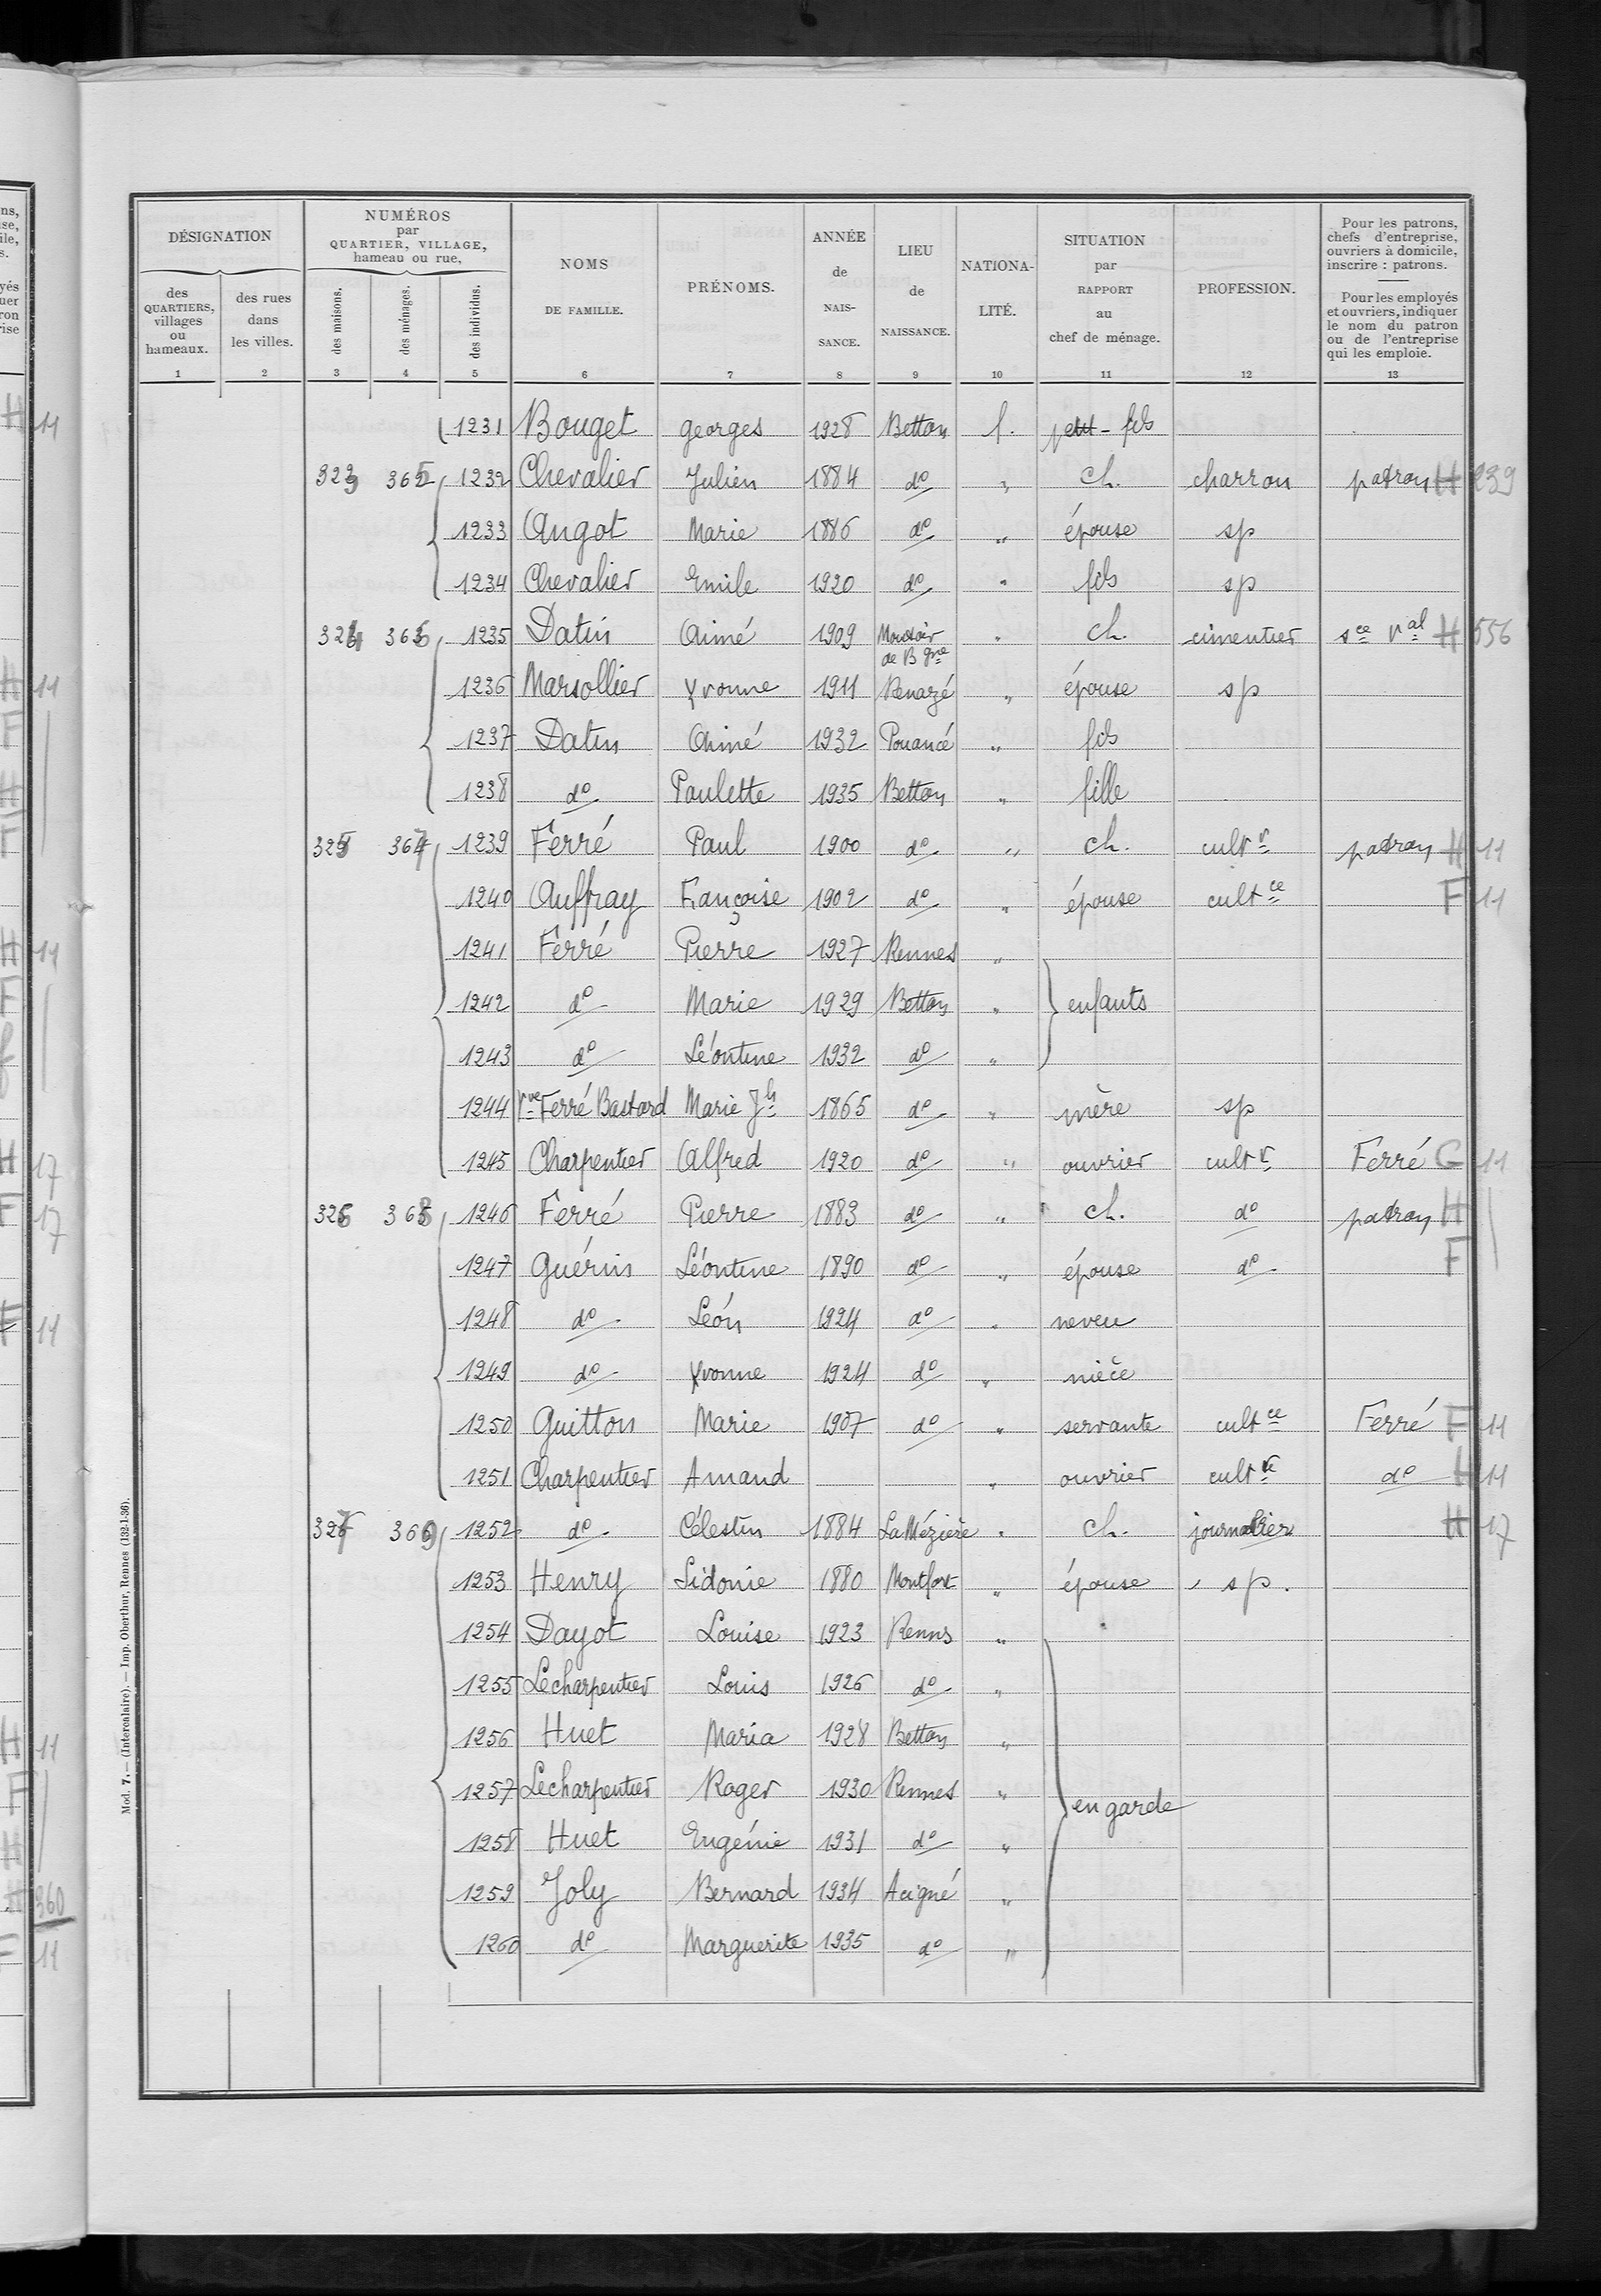 DÉSIGNATION
NUMÉROS
par
QUARTIER, VILLAGE,
hameau ou rue.
NOMS
DE FAMILLE.
PRÉNOMS.
ANNÉE
de
NAIS-
SANCE.
LIEU
de
NAISSANCE.
NATIONA-
LITÉ.
SITUATION
par
RAPPORT
au
chef de ménage.
PROFESSION.
Pour les patrons,
chefs d'entreprise,
ouvriers à domicile,
inscrire : patrons.
Pour les employés
et ouvriers, indiquer
le nom du patron
ou de l'entreprise
qui les emploie.
des
QUARTIERS,
villages
ou
hameaux.
des rues
dans
les villes.
des maisons.
des ménages.
des individus.
1 2 3 4 5 6 7 8 9 10 11 12 13
1231 Bouget georges 1928 Betton f. petit-fils
323 365 1232 Chevalier Julien 1884 do " ch. charron patron H 239
1233 Angot Marie 1886 do " épouse sp
1234 Chevalier Emile 1920 do " fils sp
324 366 1235 Datin Aimé 1909 Moutoir de Bgne " ch. cimentier sce Val H 556
1236 Marsollier Yvonne 1911 Renazé " épouse sp
1237 Datin Aimé 1932 Pouancé " fils
1238 do Paulette 1935 Betton " fille
325 367 1239 Ferré Paul 1900 do " ch. cultr patron H 11
1240 Auffray Françoise 1902 do " épouse cultce F 11
1241 Ferré Pierre 1927 Rennes "
1242 do Marie 1929 Betton " enfants
1243 do Léontine 1932 do "
1244 Vve Ferré Bastard Marie Jh 1865 do " mère sp
1245 Charpentier Alfred 1920 do " ouvrier cultr Ferré G 11
326 368 1246 Ferré Pierre 1883 do " ch. do patron H
1247 Guérin Léontine 1890 do " épouse do F
1248 do Léon 1924 do " neveu
1249 do Yvonne 1924 do " nièce
1250 Guitton Marie 1907 do " servante cultce Ferré F 11
1251 Charpentier Amand " ouvrier cultr do H 11
327 369 1252 do Célestin 1884 La Mézière " ch. journalier H 17
1253 Henry Sidonie 1880 Montfort " épouse sp.
1254 Dayot Louise 1923 Renns "
1255 Lecharpentier Louis 1926 do "
1256 Huet Maria 1928 Betton "
1257 Lecharpentier Roger 1930 Rennes " en garde
1258 Huet Eugénie 1931 do "
1259 Joly Bernard 1934 Acigné "
1260 do Marguerite 1935 do "
Mod. 7. — (Intercalaire). — Imp. Oberthur, Rennes (132-1-36).